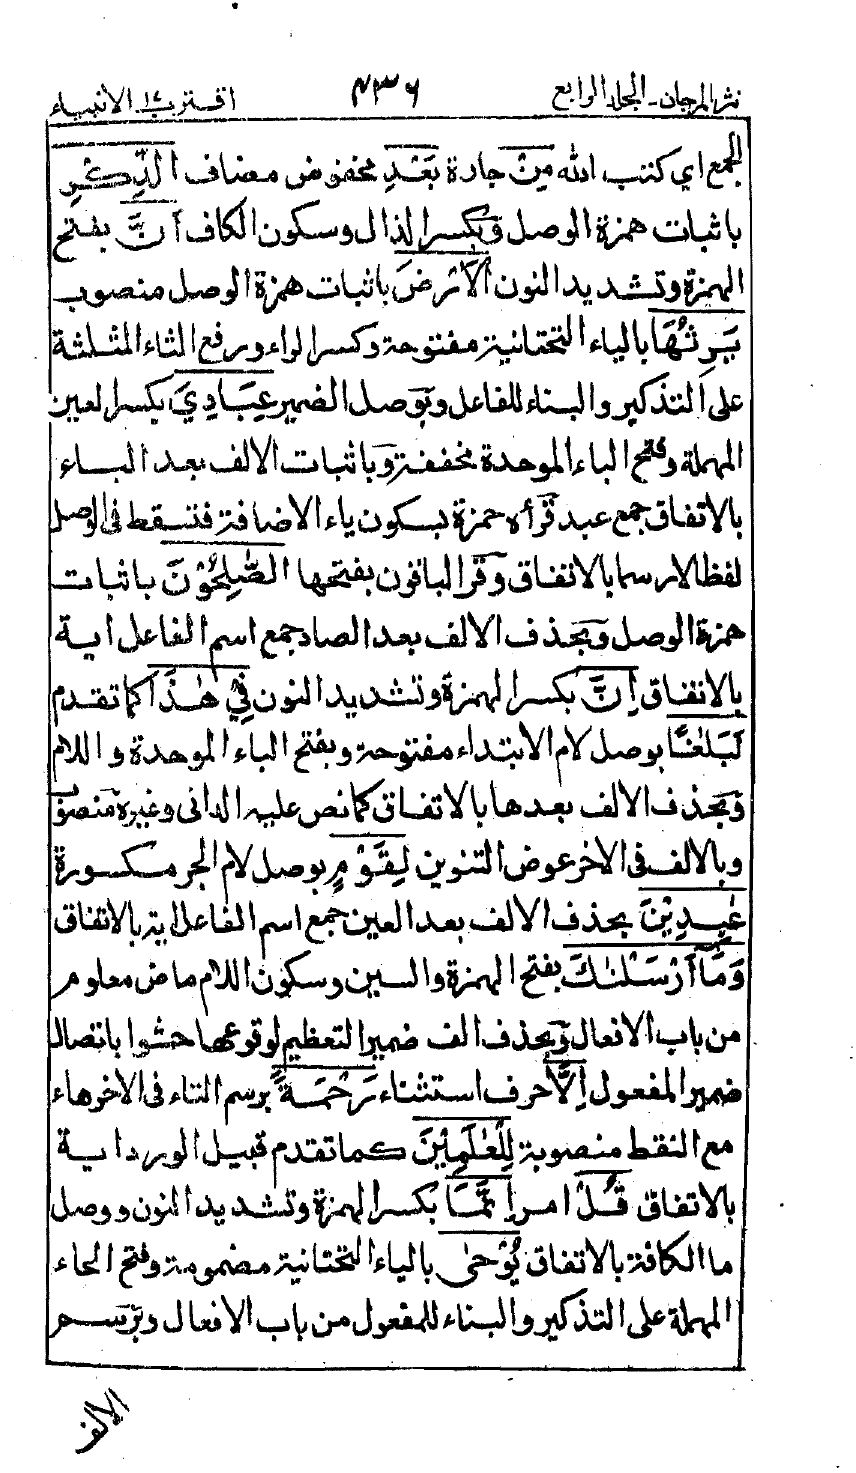 نثر المرجان ـ الجلد الرابع ٤٣٦ اقترب ١٧ الانبياء
الجمع اي كتب الله مِنْ جارة بَعْدِ مخفوض مضاف الذِّكْرِ
باثبات همزة الوصل وبكسر الذال وسكون الكاف اَنَّ بفتح
الهمزة وتشديد النون الْاَرْضَ باثبات همزة الوصل منصوب
يَرِثُهَا بالياء التحتانية مفتوحة وكسر الراء ورفع الثاء المثلثة
على التذكير والبناء للفاعل وبوصل الضمير عِبَادِيَ بكسر العين
المهملة وفتح الباء الموحدة مخففة وباثبات الالف بعد الباء
بالاتفاق جمع عبد قرأه حمزة بسكون ياء الاضافة فتسقط في الوصل
لفظا لا رسما بالاتفاق وقرا الباقون بفتحها الصّٰلِحُوْنَ باثبات
همزة الوصل وبحذف الالف بعد الصاد جمع اسم الفاعل اية
بالاتفاق اِنَّ بكسر الهمزة وتشديد النون فِيْ هٰذَا كما تقدم
لَبَلٰغًا بوصل لام الابتداء مفتوحة وبفتح الباء الموحدة واللام
وبحذف الالف بعدها بالاتفاق كما نص عليه الداني وغيره منصوب
وبالالف في الاخر عوض التنوين لِقَوْمٍ بوصل لام الجر مكسورة
عٰبِدِيْنَ بحذف الالف بعد العين جمع اسم الفاعل اية بالاتفاق
وَمَآ اَرْسَلْنٰكَ بفتح الهمزة والسين وسكون اللام ماض معلوم
من باب الافعال وبحذف الف ضمير التعظيم لوقوعها حشوا باتصال
ضمير المفعول اِلَّا حرف استثناء رَحْمَةً برسم التاء في الاخر هاء
مع النقط منصوبة لِّلْعٰلَمِيْنَ كما تقدم قبيل الورد اية
بالاتفاق قُلْ امر اِنَّمَا بكسر الهمزة وتشديد النون ووصل
ما الكافة بالاتفاق يُوْحٰى بالياء التحتانية مضمومة وفتح الحاء
المهملة على التذكير والبناء للمفعول من باب الافعال وبرسم
الالف